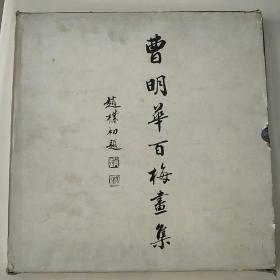 曹明華百梅畫集
趙樸初題